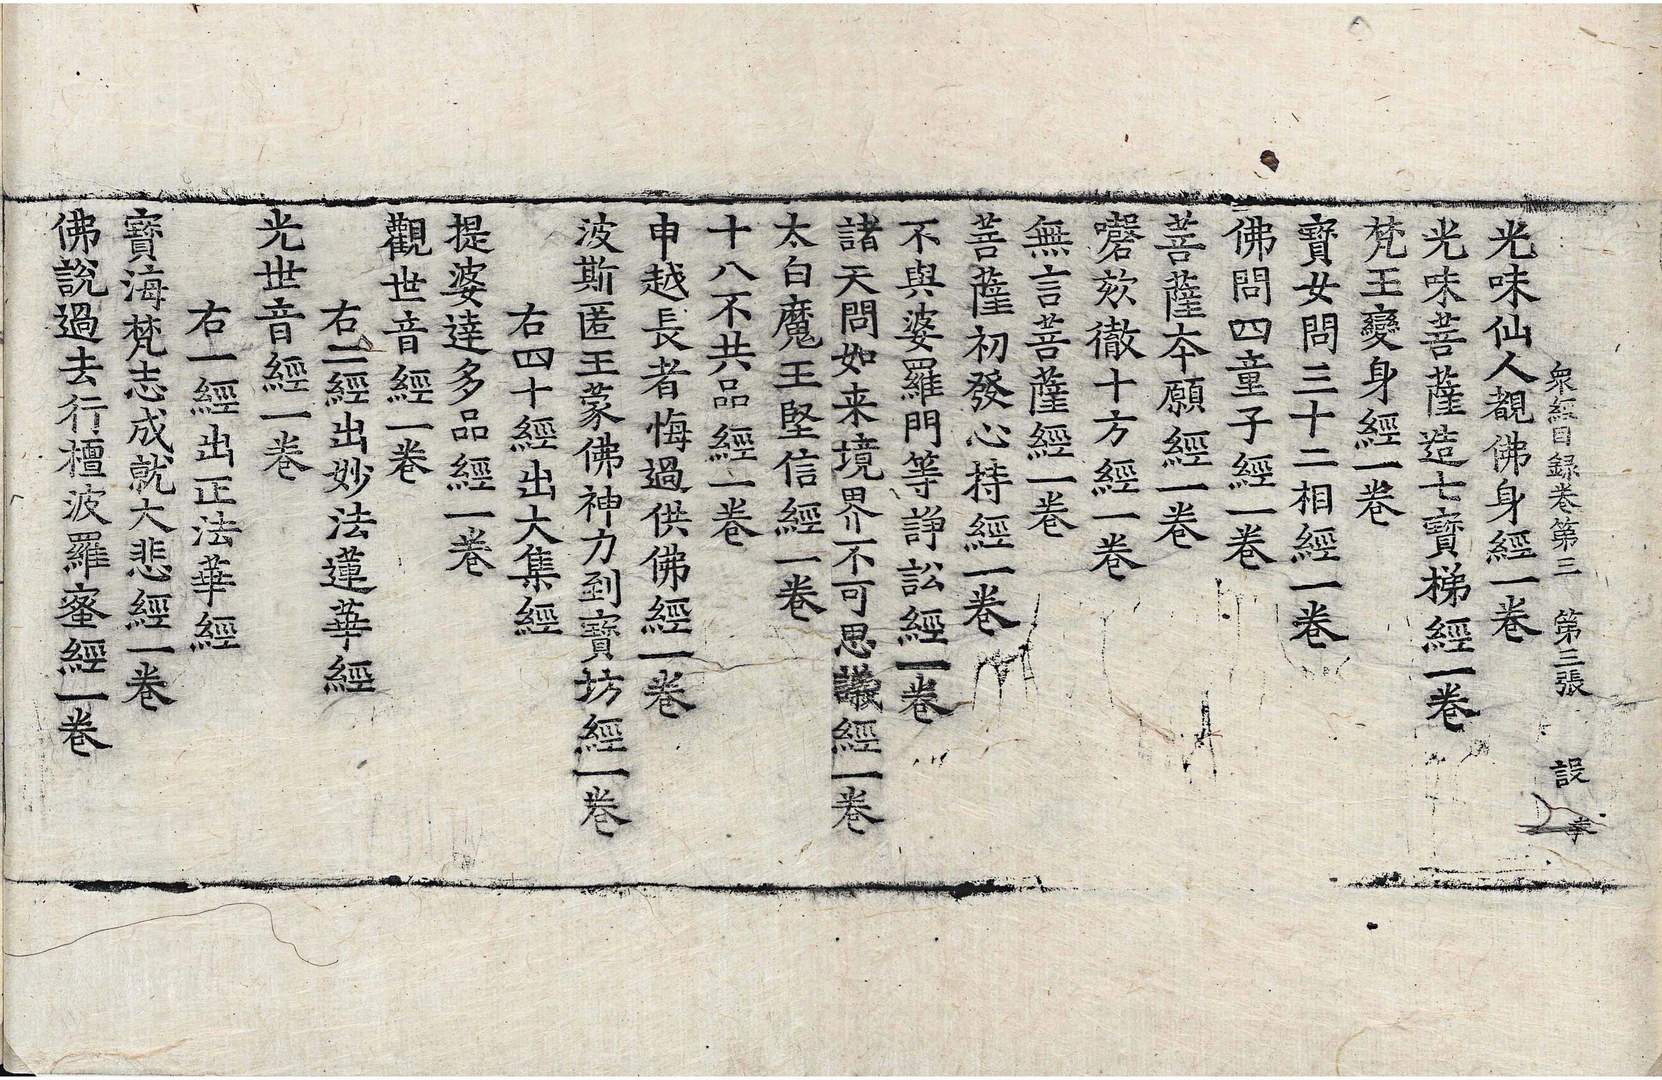 衆經目録卷第三　第三張　設
光味仙人覩佛身經一卷
光味菩薩造七寶梯經一卷
梵王變身經一卷
寶女問三十二相經一卷
佛問四童子經一卷
菩薩夲願經一卷
嚫欬徹十方經一卷
無言菩薩經一卷
菩薩初發心持經一卷
不與婆羅門等諍訟經一卷
諸天問如来境界不可思議經一卷
太白魔王堅信經一卷
十八不共品經一卷
申越長者悔過供佛經一卷
波斯匿王蒙佛神力到寶坊經一卷
右四十經出大集經
提婆達多品經一卷
觀世音經一卷
右二經出妙法蓮華經
光世音經一卷
右一經出正法華經
寶海梵志成就大悲經一卷
佛說過去行檀波羅蜜經一卷